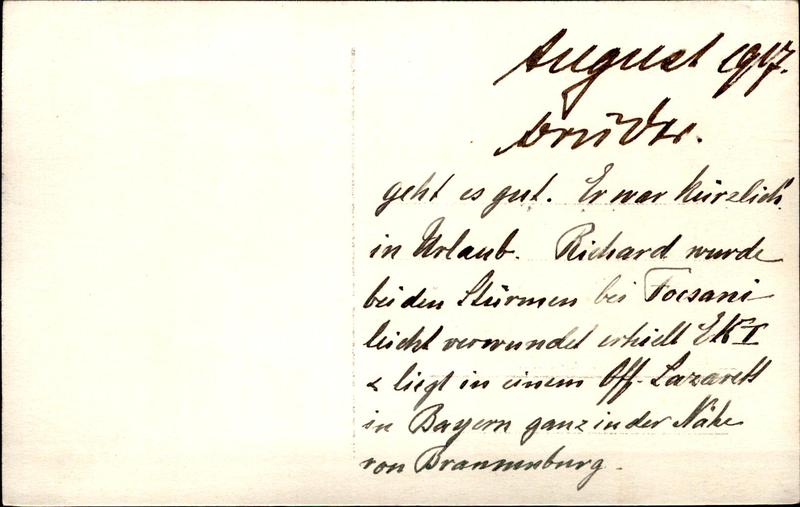 August 1917.
Bruder.
geht es gut. Er war kürzlich
in Urlaub. Richard wurde
bei den Stürmen bei Focsani
leicht verwundet erhielt EK I
& liegt in einem Off. Lazarett
in Bayern ganz in der Nähe
von Brannenburg.